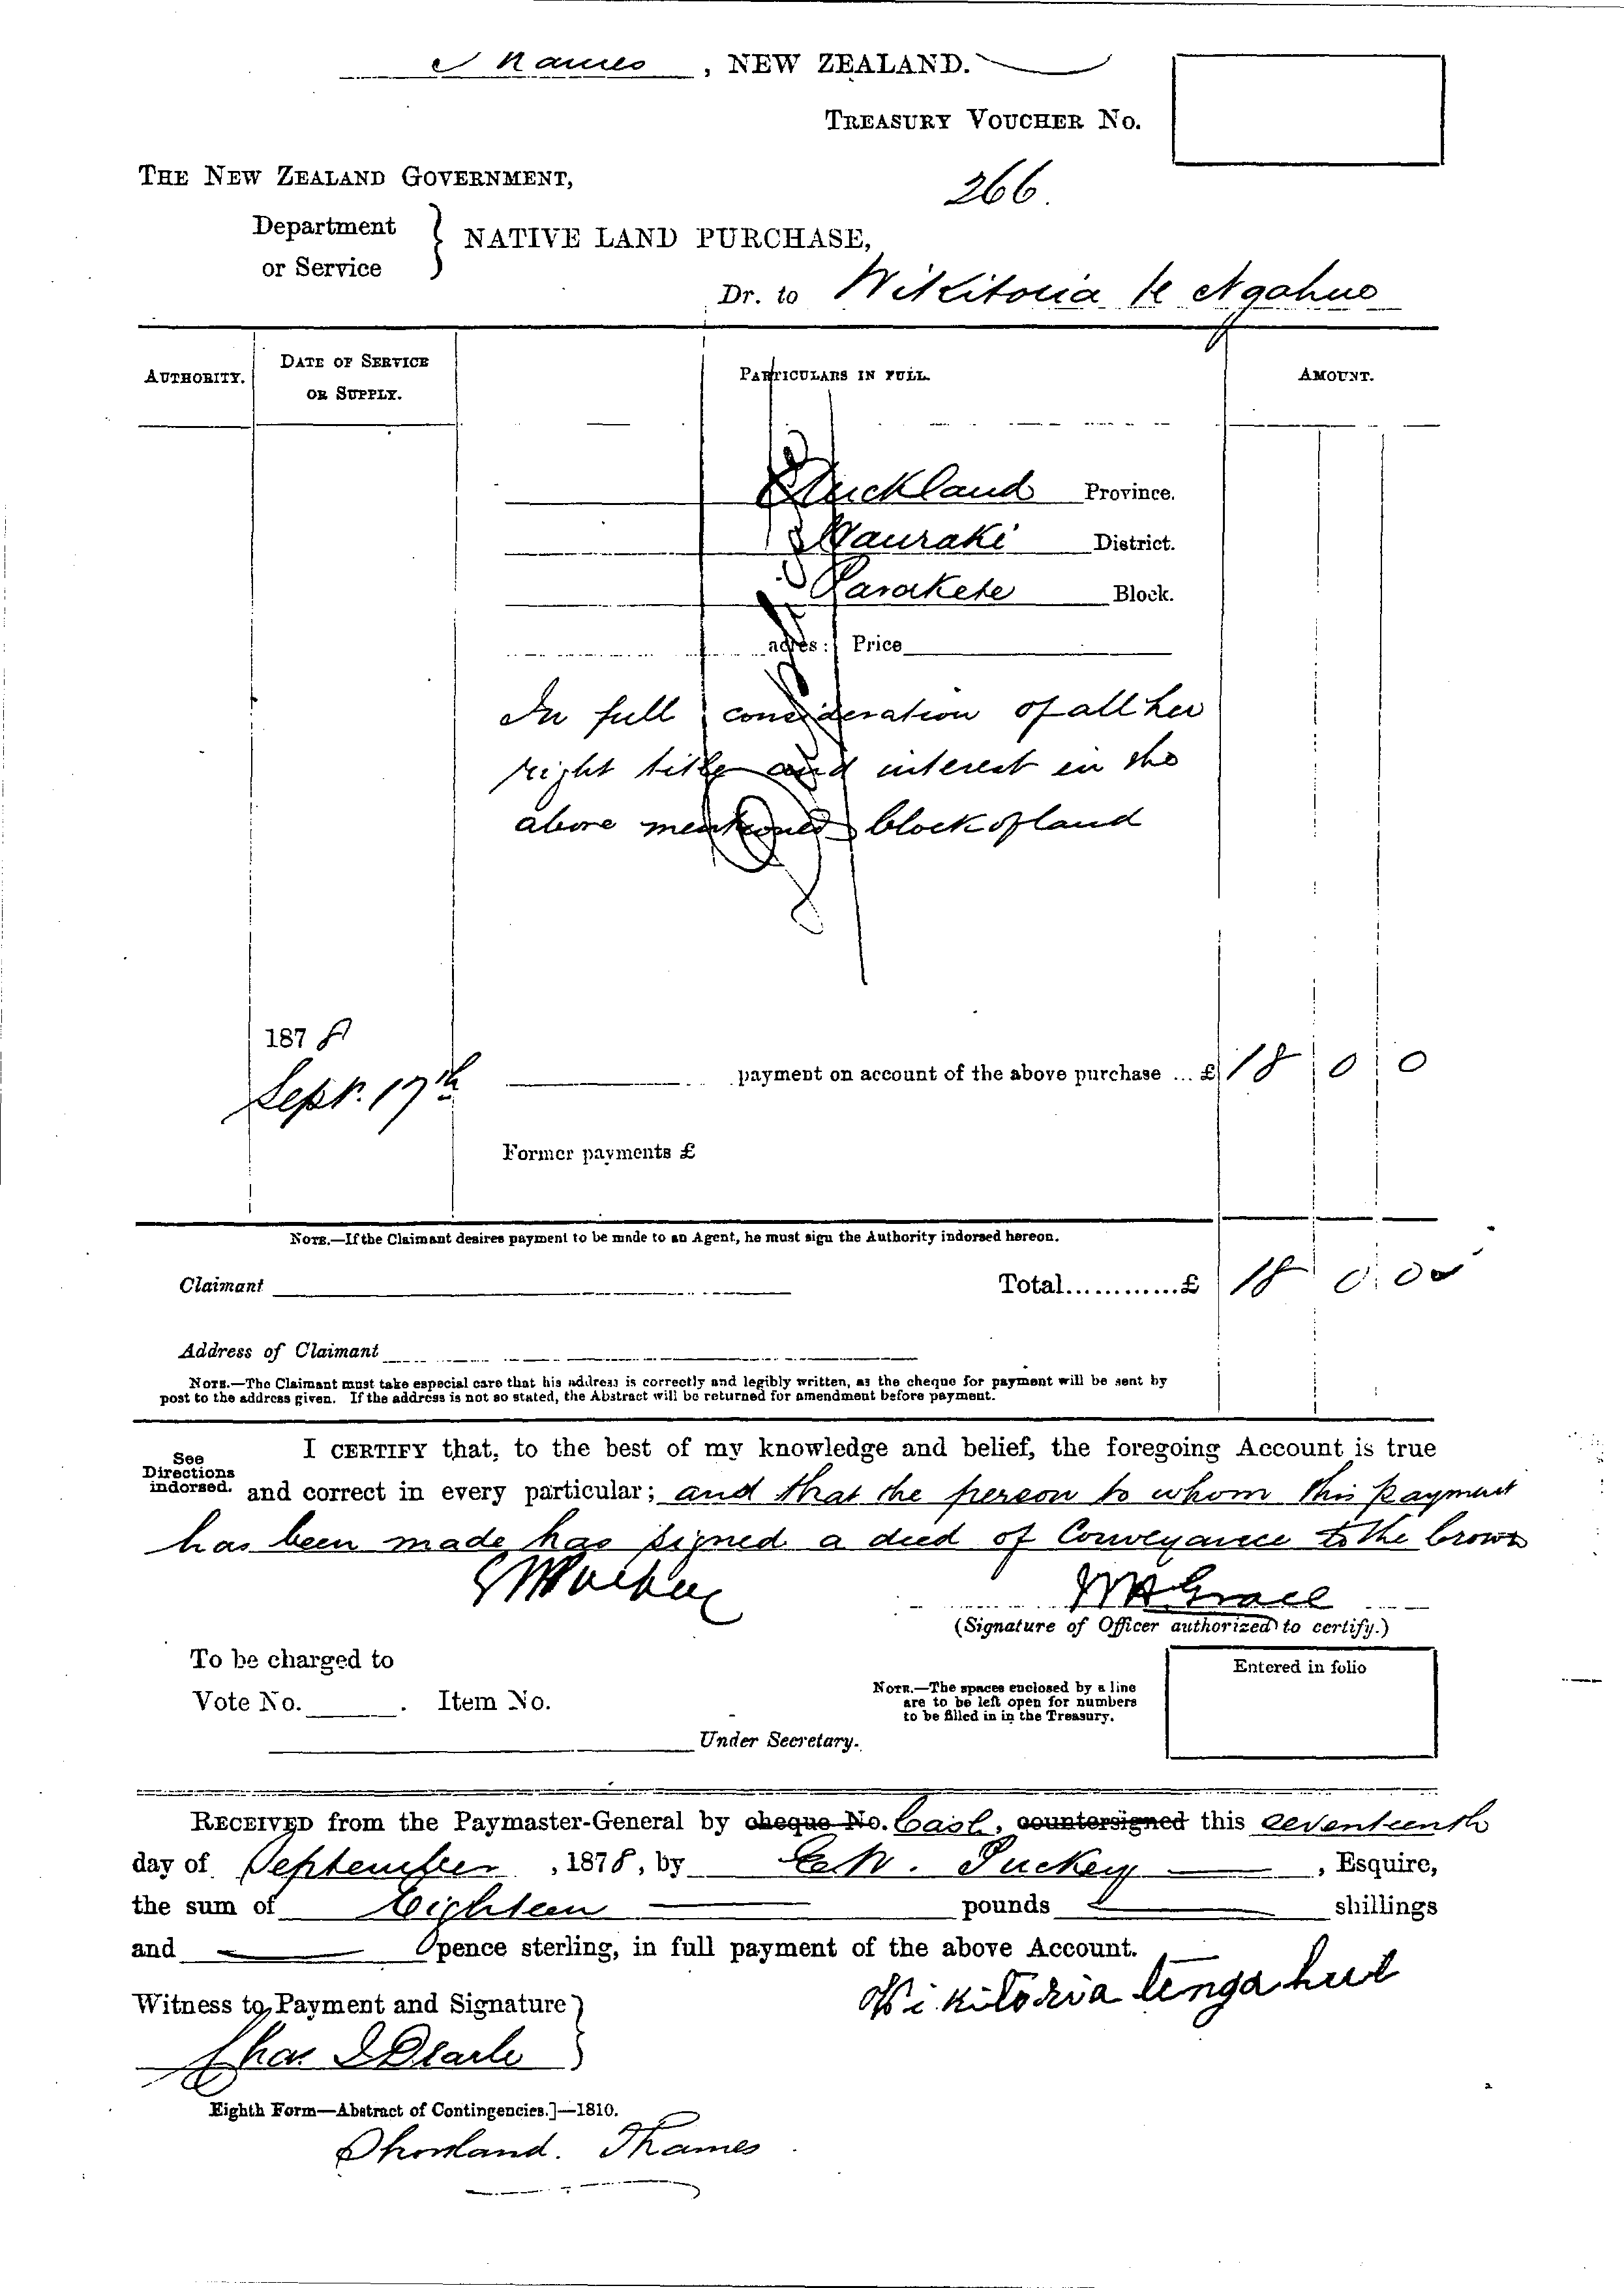 Thames, NEW ZEALAND.
TREASURY VOUCHER No.
266.
THE NEW ZEALAND GOVERNMENT,
Department or Service } NATIVE LAND PURCHASE,
Dr. to Wikitoria te Ngahue
AUTHORITY. DATE OF SERVICE OR SUPPLY. PARTICULARS IN FULL. AMOUNT.
Auckland Province.
Hauraki District.
Block.
acres: Price
In full consideration of all her
right title and interest in the
above mentioned block of land
1878
Sept. 17th payment on account of the above purchase ... £ 18 0 0
Former payments £
NOTE.—If the Claimant desires payment to be made to an Agent, he must sign the Authority indorsed hereon.
Claimant Total............£ 18 0.0
Address of Claimant
NOTE.—The Claimant must take especial care that his address is correctly and legibly written, as the cheque for payment will be sent by
post to the address given. If the address is not so stated, the Abstract will be returned for amendment before payment.
See Directions indorsed.
I CERTIFY that, to the best of my knowledge and belief, the foregoing Account is true
and correct in every particular; and that the person to whom this payment
has been made has signed a deed of Conveyance to the Crown
W H Grace
(Signature of Officer authorized to certify.)
To be charged to
Vote No. . Item No.
Under Secretary.
NOTE.—The spaces enclosed by a line
are to be left open for numbers
to be filled in in the Treasury.
Entered in folio
RECEIVED from the Paymaster-General by cheque No. Cash, countersigned this seventeenth
day of September, 1878, by E. W. Puckey, Esquire,
the sum of Eighteen pounds shillings
and pence sterling, in full payment of the above Account.
Wikitoria tengahue
Witness to Payment and Signature }
Chas J Dearle
Eighth Form—Abstract of Contingencies.]—1810.
Shortland. Thames